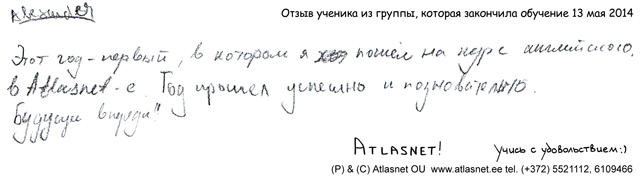 Alexander
Отзыв ученика из группы, которая закончила обучение 13 мая 2014
Этот год - первый, в котором я пошёл на курс английского,
в Atlasnet-е. Год прошел успешно и познавательно.
Будущее впереди!
ATLASNET! Учись с удовольствием:)
(P) & (C) Atlasnet OU www.atlasnet.ee tel. (+372) 5521112, 6109466